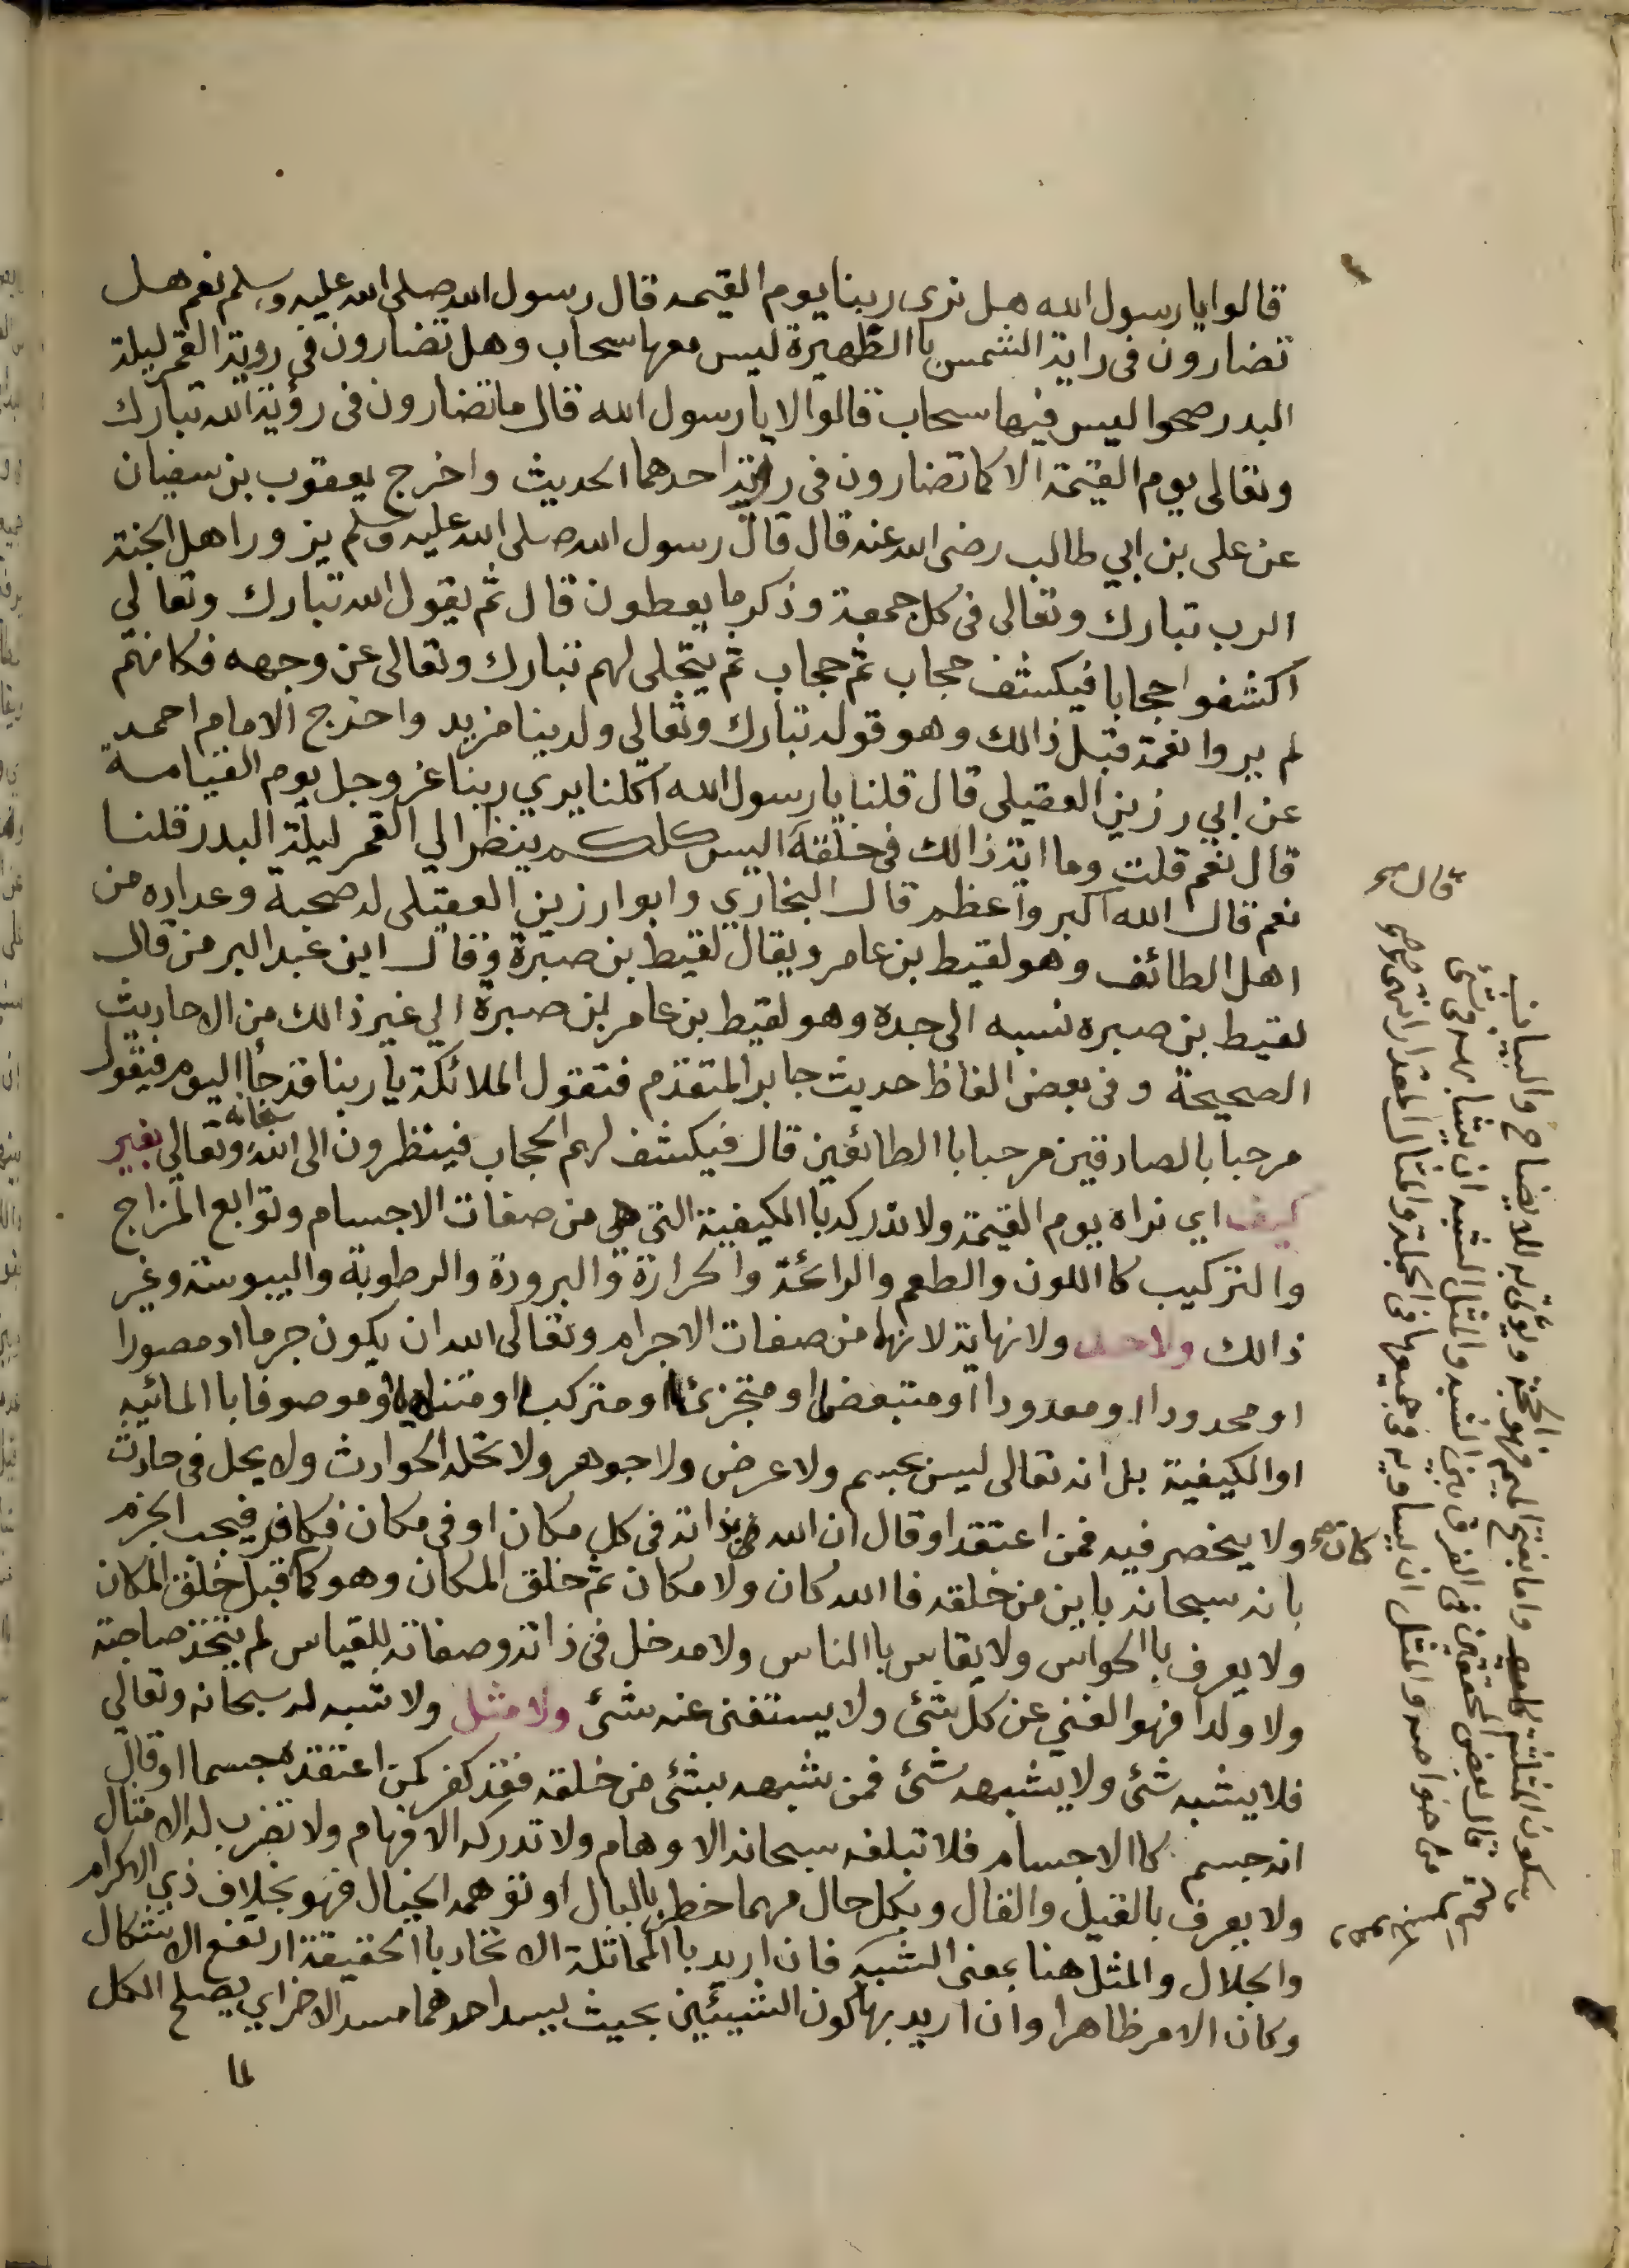 قالوا يا رسول الله هل نرى ربنا يوم القيمه قال رسول الله صلى الله عليه وسلم نعم هل
تضارون فى راية الشمس با الظهيرة ليس معها سحاب وهل تضارون فى روية القمر ليلة
البدر صحوا ليس فيها سحاب قالوا لا يا رسول الله قال ما تضارون فى رؤية الله تبارك
وتعالى يوم القيمة الا كما تضارون فى راية احدهما الحديث واخرج يعقوب بن سفيان
عن على بن ابي طالب رضى الله عنه قال قال رسول الله صلى الله عليه وسلم يزورا هل الجنة
الرب تبارك وتعالى فى كل جمعة وذكر ما يعطون قال ثم يقول الله تبارك وتعالى
اكشفوا حجابا فيكشف حجاب ثم حجاب ثم يتجلى لهم تبارك وتعالى عن وجهه فكانهم
لم يروا نعمة قبل ذالك وهو قوله تبارك وتعالى ولدينا مزيد واخرج الامام احمد
عن ابي رزين العقيلى قال قلنا يا رسول الله اكلنا يري ربنا عز وجل يوم القيامة
قال نعم قلت وما اية ذالك فى خلقه اليس كلكم ينظر الي القمر ليلة البدر قلنا
نعم قال الله اكبر واعظم قال البخاري وابوا رزين العقيلى له صحبة وعداده من
اهل الطائف وهو لقيط بن عامر ويقال لقيط بن صبرة وقال ابن عبد البر من قال
لقيط بن صبره نسبه الى جده وهو لقيط بن عامر بن صبرة الي غير ذالك من الاحاديث
الصحيحة وفى بعض الفاظ حديث جابر المتقدم فتقول الملائكة يا ربنا قد جاا اليوم فيقول
مرحبا بالصادقين مرحبا با الطائعين قال فيكشف لهم الحجاب فينظرون الى الله سبحانه وتعالي بغير
كيف اي نراه يوم القيمة ولا ندركه با الكيفية التى هى من صفات الاجسام وتوابع المزاج
والتركيب كا اللون والطعم والرائحة والحرارة والبرودة والرطوبة واليبوسة وغير
ذالك ولا حد ولا نهاية لانها من صفات الاجرام وتعالى الله ان يكون جرما او مصورا
او محدودا او معدودا او متبعضا او متجزئا او متركبا او متناهيا او موصوفا با المائيه
او الكيفية بل انه تعالى ليس بجسم ولا عرض ولا جوهر ولا تحله الحوادث ولا يحل فى حادث
ولا ينحصر فيه فمن اعتقد او قال ان الله بذاته فى كل مكان او فى مكان فكافر فيجب الجزم
بانه سبحانه باين من خلقه فا الله كان ولا مكان ثم خلق المكان وهو كما كان قبل خلق المكان
ولا يعرف با الحواس ولا يقاس با الناس ولا مدخل فى ذاته وصفاته للقياس لم يتخذ صاحبة
ولا ولدا فهو الغني عن كل شئ ولا يستغنى عنه شئ ولا مثل ولا شبه له سبحانه وتعالي
فلا يشبه شئ ولا يشبهه شئ فمن شبهه بشئ من خلقه فقد كفر كمن اعتقده جسما او قال
انه جسم كا الاجسام فلا تبلغه سبحانه الاوهام ولا تدركه الافهام ولا تضرب له الامثال
ولا يعرف بالقيل والقال وبكل حال مهما خطر بالبال او توهمه الخيال فهو بخلاف ذي الاكرام
والجلال والمثل هنا بمعنى الشبه فان اريد با المماثلة الاتحاد با الحقيقة ارتفع الاشكال
وكان الامر ظاهرا وان اريد بها كون الشيئين بحيث يسد احدهما مسد الاخر اي يصلح الكل
لما
قال صح
كان صح
بسكون المثلثة واما بفتح الميم فهو الحجة ويؤتى به للايضاح والبيان
قال بعض المحققين فى الفرق بين الشبه والمثل الشبه ان يشابهه فى شئ
من خواصه والمثل ان يساويه فى جميعها فى الجملة والمثال المقدار انتهى صح